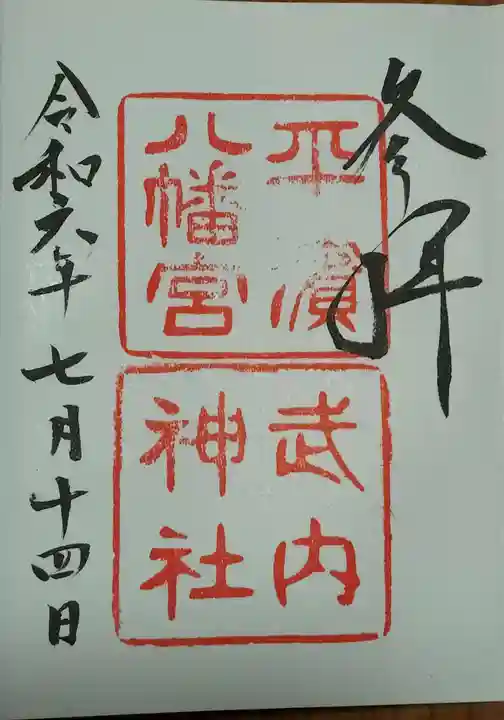 奉拝
平濱
八幡宮
武内
神社
令和六年七月十四日